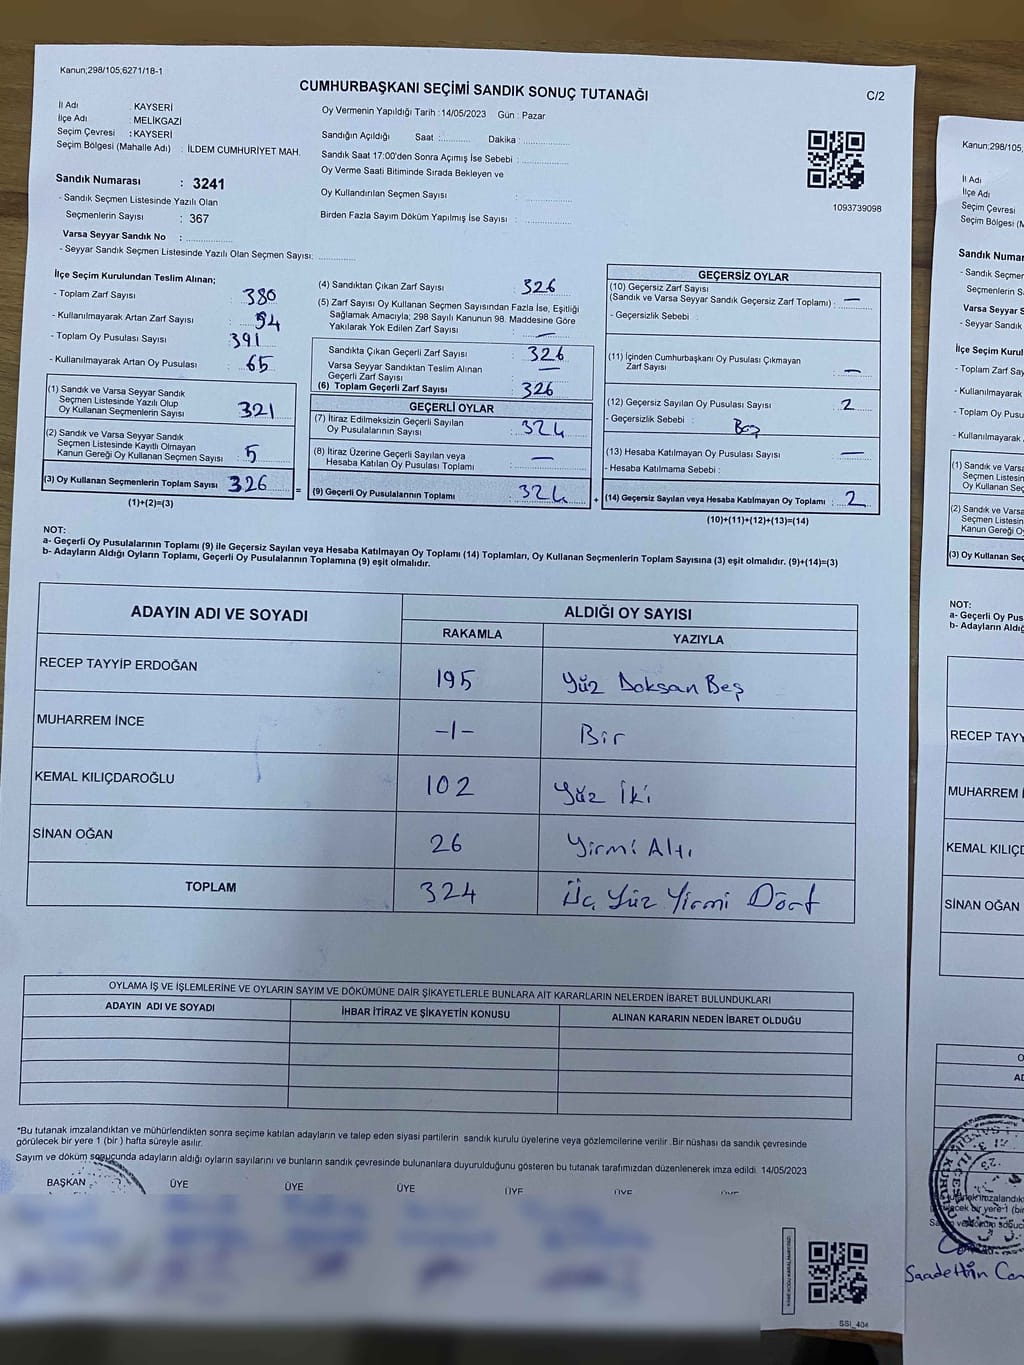 Kanun;298/105,6271/18-1
CUMHURBAŞKANI SEÇİMİ SANDIK SONUÇ TUTANAĞI
C/2
İl Adı : KAYSERİ
İlçe Adı : MELİKGAZİ
Seçim Çevresi : KAYSERİ
Seçim Bölgesi (Mahalle Adı) : İLDEM CUMHURİYET MAH.
Oy Vermenin Yapıldığı Tarih :14/05/2023 Gün : Pazar
Sandığın Açıldığı Saat :............ Dakika :............
Sandık Saat 17:00'den Sonra Açımış İse Sebebi :............
Oy Verme Saati Bitiminde Sırada Bekleyen ve
Oy Kullandırılan Seçmen Sayısı :............
Birden Fazla Sayım Döküm Yapılmış İse Sayısı :............
1093739098
Sandık Numarası : 3241
- Sandık Seçmen Listesinde Yazılı Olan
Seçmenlerin Sayısı : 367
Varsa Seyyar Sandık No :............
- Seyyar Sandık Seçmen Listesinde Yazılı Olan Seçmen Sayısı:............
İlçe Seçim Kurulundan Teslim Alınan;
- Toplam Zarf Sayısı : 380
- Kullanılmayarak Artan Zarf Sayısı : 54
- Toplam Oy Pusulası Sayısı : 391
- Kullanılmayarak Artan Oy Pusulası : 65
(1) Sandık ve Varsa Seyyar Sandık
Seçmen Listesinde Yazılı Olup
Oy Kullanan Seçmenlerin Sayısı : 321
(2) Sandık ve Varsa Seyyar Sandık
Seçmen Listesinde Kayıtlı Olmayan
Kanun Gereği Oy Kullanan Seçmen Sayısı : 5
(3) Oy Kullanan Seçmenlerin Toplam Sayısı : 326
(1)+(2)=(3)
=
(4) Sandıktan Çıkan Zarf Sayısı : 326
(5) Zarf Sayısı Oy Kullanan Seçmen Sayısından Fazla İse, Eşitliği
Sağlamak Amacıyla; 298 Sayılı Kanunun 98. Maddesine Göre
Yakılarak Yok Edilen Zarf Sayısı : —
Sandıkta Çıkan Geçerli Zarf Sayısı : 326
Varsa Seyyar Sandıktan Teslim Alınan
Geçerli Zarf Sayısı : —
(6) Toplam Geçerli Zarf Sayısı : 326
GEÇERLİ OYLAR
(7) İtiraz Edilmeksizin Geçerli Sayılan
Oy Pusulalarının Sayısı : 324
(8) İtiraz Üzerine Geçerli Sayılan veya
Hesaba Katılan Oy Pusulası Toplamı : —
(9) Geçerli Oy Pusulalarının Toplamı : 324
+
GEÇERSİZ OYLAR
(10) Geçersiz Zarf Sayısı
(Sandık ve Varsa Seyyar Sandık Geçersiz Zarf Toplamı) : —
- Geçersizlik Sebebi :
(11) İçinden Cumhurbaşkanı Oy Pusulası Çıkmayan
Zarf Sayısı : —
(12) Geçersiz Sayılan Oy Pusulası Sayısı : 2
- Geçersizlik Sebebi : Boş
(13) Hesaba Katılmayan Oy Pusulası Sayısı : —
- Hesaba Katılmama Sebebi :
(14) Geçersiz Sayılan veya Hesaba Katılmayan Oy Toplamı : 2
(10)+(11)+(12)+(13)=(14)
NOT:
a- Geçerli Oy Pusulalarının Toplamı (9) ile Geçersiz Sayılan veya Hesaba Katılmayan Oy Toplamı (14) Toplamları, Oy Kullanan Seçmenlerin Toplam Sayısına (3) eşit olmalıdır. (9)+(14)=(3)
b- Adayların Aldığı Oyların Toplamı, Geçerli Oy Pusulalarının Toplamına (9) eşit olmalıdır.
ADAYIN ADI VE SOYADI ALDIĞI OY SAYISI
RAKAMLA YAZIYLA
RECEP TAYYİP ERDOĞAN 195 Yüz Doksan Beş
MUHARREM İNCE -1- Bir
KEMAL KILIÇDAROĞLU 102 Yüz İki
SİNAN OĞAN 26 Yirmi Altı
TOPLAM 324 Üç Yüz Yirmi Dört
OYLAMA İŞ VE İŞLEMLERİNE VE OYLARIN SAYIM VE DÖKÜMÜNE DAİR ŞİKAYETLERLE BUNLARA AİT KARARLARIN NELERDEN İBARET BULUNDUKLARI
ADAYIN ADI VE SOYADI İHBAR İTİRAZ VE ŞİKAYETİN KONUSU ALINAN KARARIN NEDEN İBARET OLDUĞU
*Bu tutanak imzalandıktan ve mühürlendikten sonra seçime katılan adayların ve talep eden siyasi partilerin sandık kurulu üyelerine veya gözlemcilerine verilir .Bir nüshası da sandık çevresinde
görülecek bir yere 1 (bir ) hafta süreyle asılır.
Sayım ve döküm sonucunda adayların aldığı oyların sayılarını ve bunların sandık çevresinde bulunanlara duyurulduğunu gösteren bu tutanak tarafımızdan düzenlenerek imza edildi 14/05/2023
BAŞKAN ÜYE ÜYE ÜYE ÜYE ÜYE ÜYE
Kanun;298/105,
İl Adı
İlçe Adı
Seçim Çevresi
Seçim Bölgesi (M
Sandık Numar
- Sandık Seçmer
Seçmenlerin
Varsa Seyyar S
- Seyyar Sandık
İlçe Seçim Kurul
- Toplam Zarf Say
- Kullanılmayarak
- Toplam Oy Pusu
- Kullanılmayarak
(1) Sandık ve Varsa
Seçmen Listesin
Oy Kullanan Seç
(2) Sandık ve Varsa
Seçmen Listesin
Kanun Gereği Oy
(3) Oy Kullanan Seç
NOT:
a- Geçerli Oy Pus
b- Adayların Aldığ
RECEP TAYY
MUHARREM İ
KEMAL KILIÇD
SİNAN OĞAN
Saadettin Can